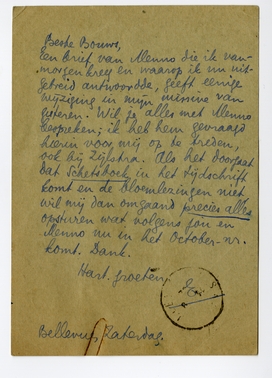 Beste Bouws,
een brief van Menno die ik van-
morgen kreeg en waarop ik nu uit-
gebreid antwoordde, geeft eenige
wijziging in mijn missive van
gisteren. Wil je alles met Menno
bespreken; ik heb hem gevraagd
hierin voor mij op te treden,
ook bij Zijlstra. Als het doorgaat
dat Schetsboek in het tijdschrift
komt en de bloemlezingen niet
wil mij dan omgaand precies alles
opsturen wat volgens jou en
Menno nu in het October-nr.
komt. Dank.
Hart. groeten,
E
Bellevue, Zaterdag.